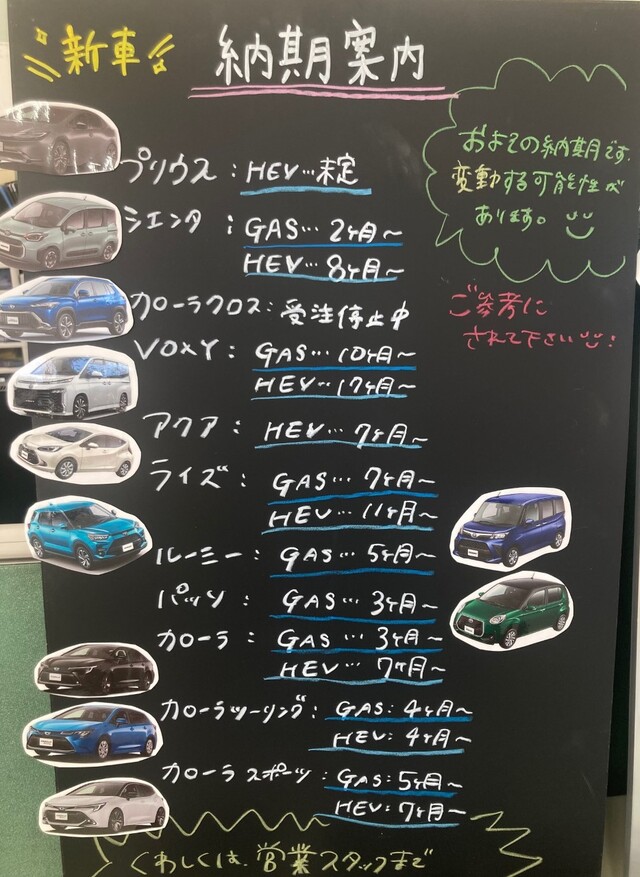 新車 納期案内
およその納期です。
変動する可能性が
あります。
ご参考に
されて下さい
プリウス：HEV…未定
シエンタ：GAS…2ヶ月～
HEV…8ヶ月～
カローラクロス：受注停止中
VOXY：GAS…10ヶ月～
HEV…17ヶ月～
アクア：HEV…7ヶ月～
ライズ：GAS…7ヶ月～
HEV…11ヶ月～
ルーミー：GAS…5ヶ月～
パッソ：GAS…3ヶ月～
カローラ：GAS…3ヶ月～
HEV…7ヶ月～
カローラツーリング：GAS：4ヶ月～
HEV：4ヶ月～
カローラスポーツ：GAS：5ヶ月～
HEV：7ヶ月～
くわしくは、営業スタッフまで